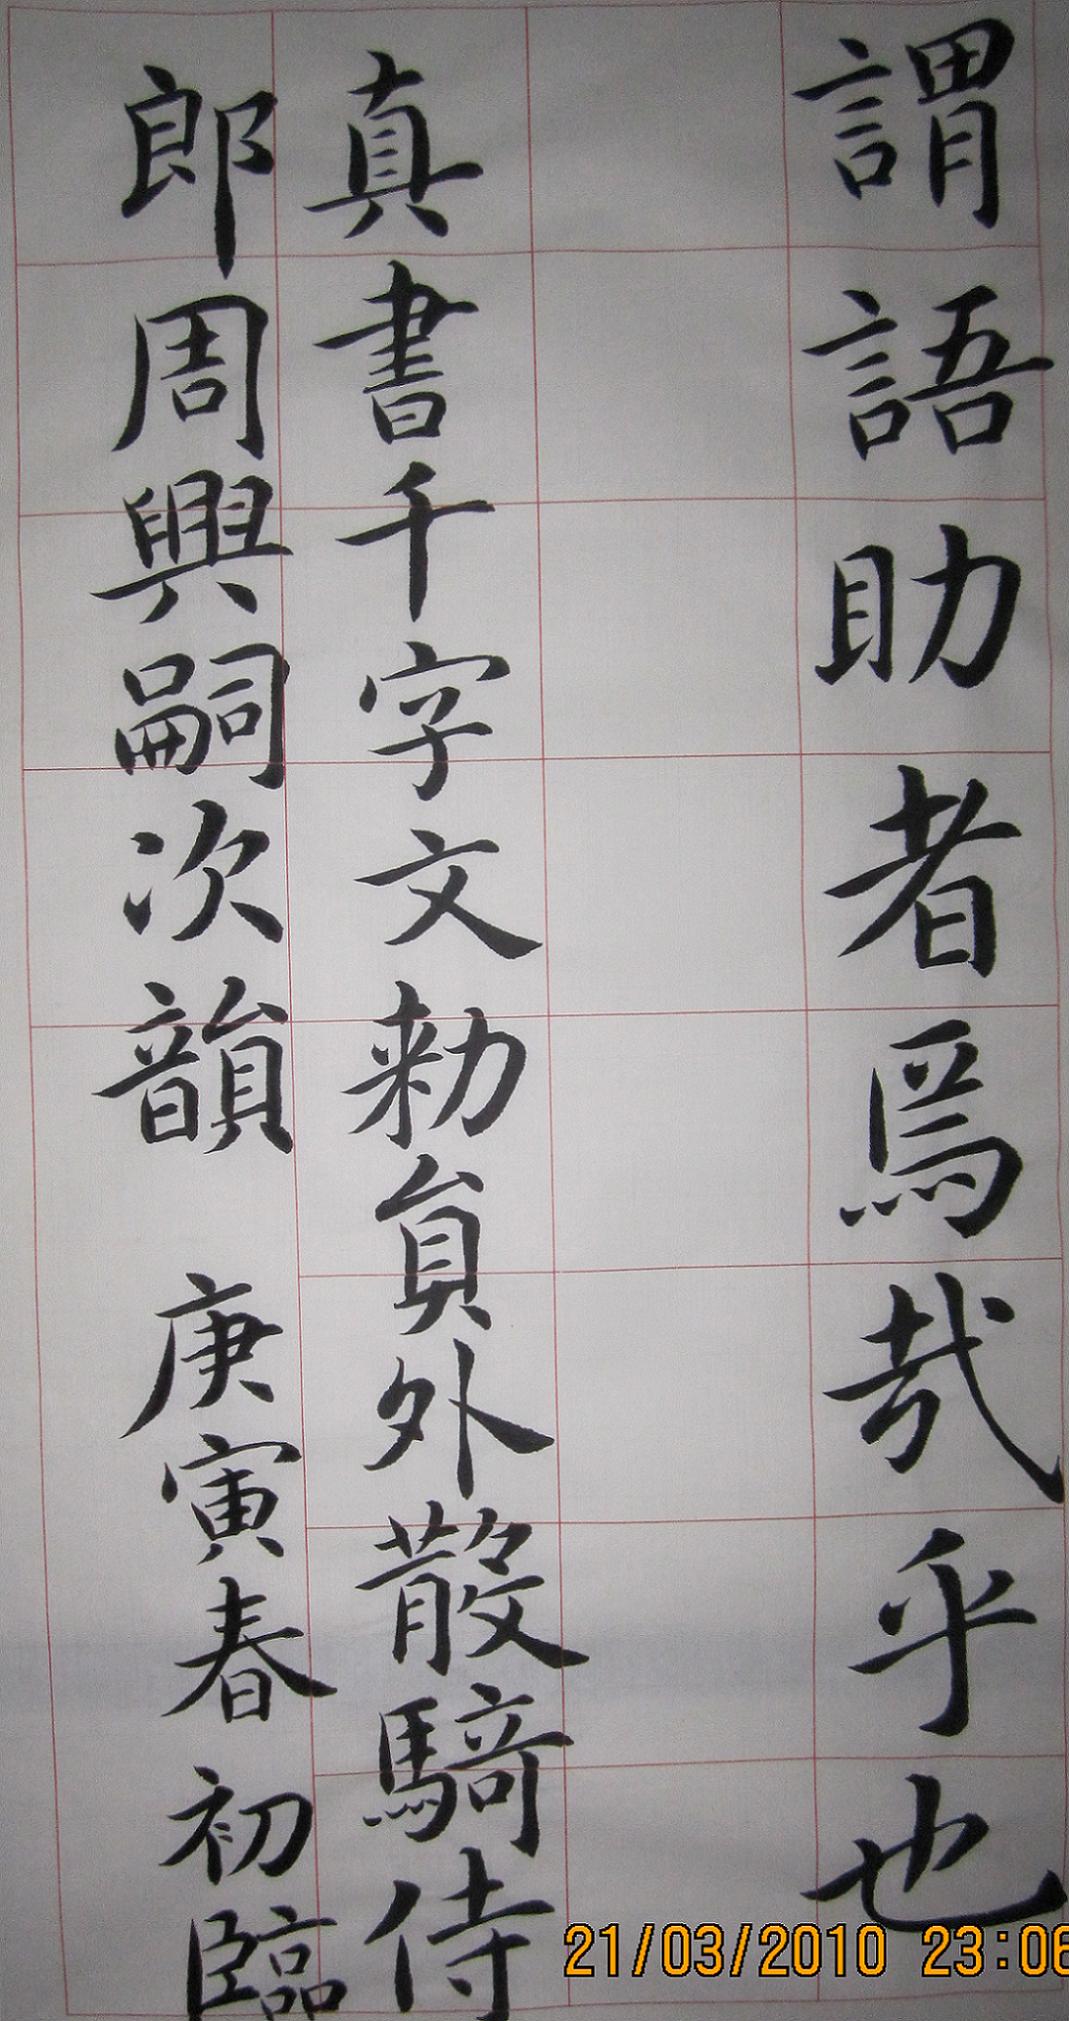 謂語助者焉哉乎也
真書千字文勑員外散騎侍
郎周興嗣次韻 庚寅春初臨
21/03/2010 23:06